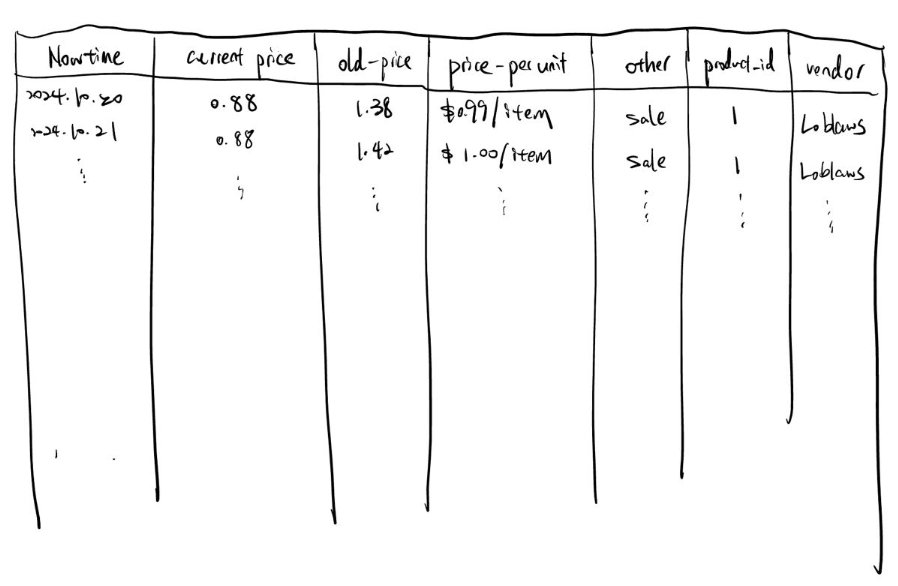 Nowtime current price old-price price-per unit other product_id vendor
2024.10.20 0.88 1.38 $0.99/item sale 1 Loblaws
2024.10.21 0.88 1.42 $1.00/item sale 1 Loblaws